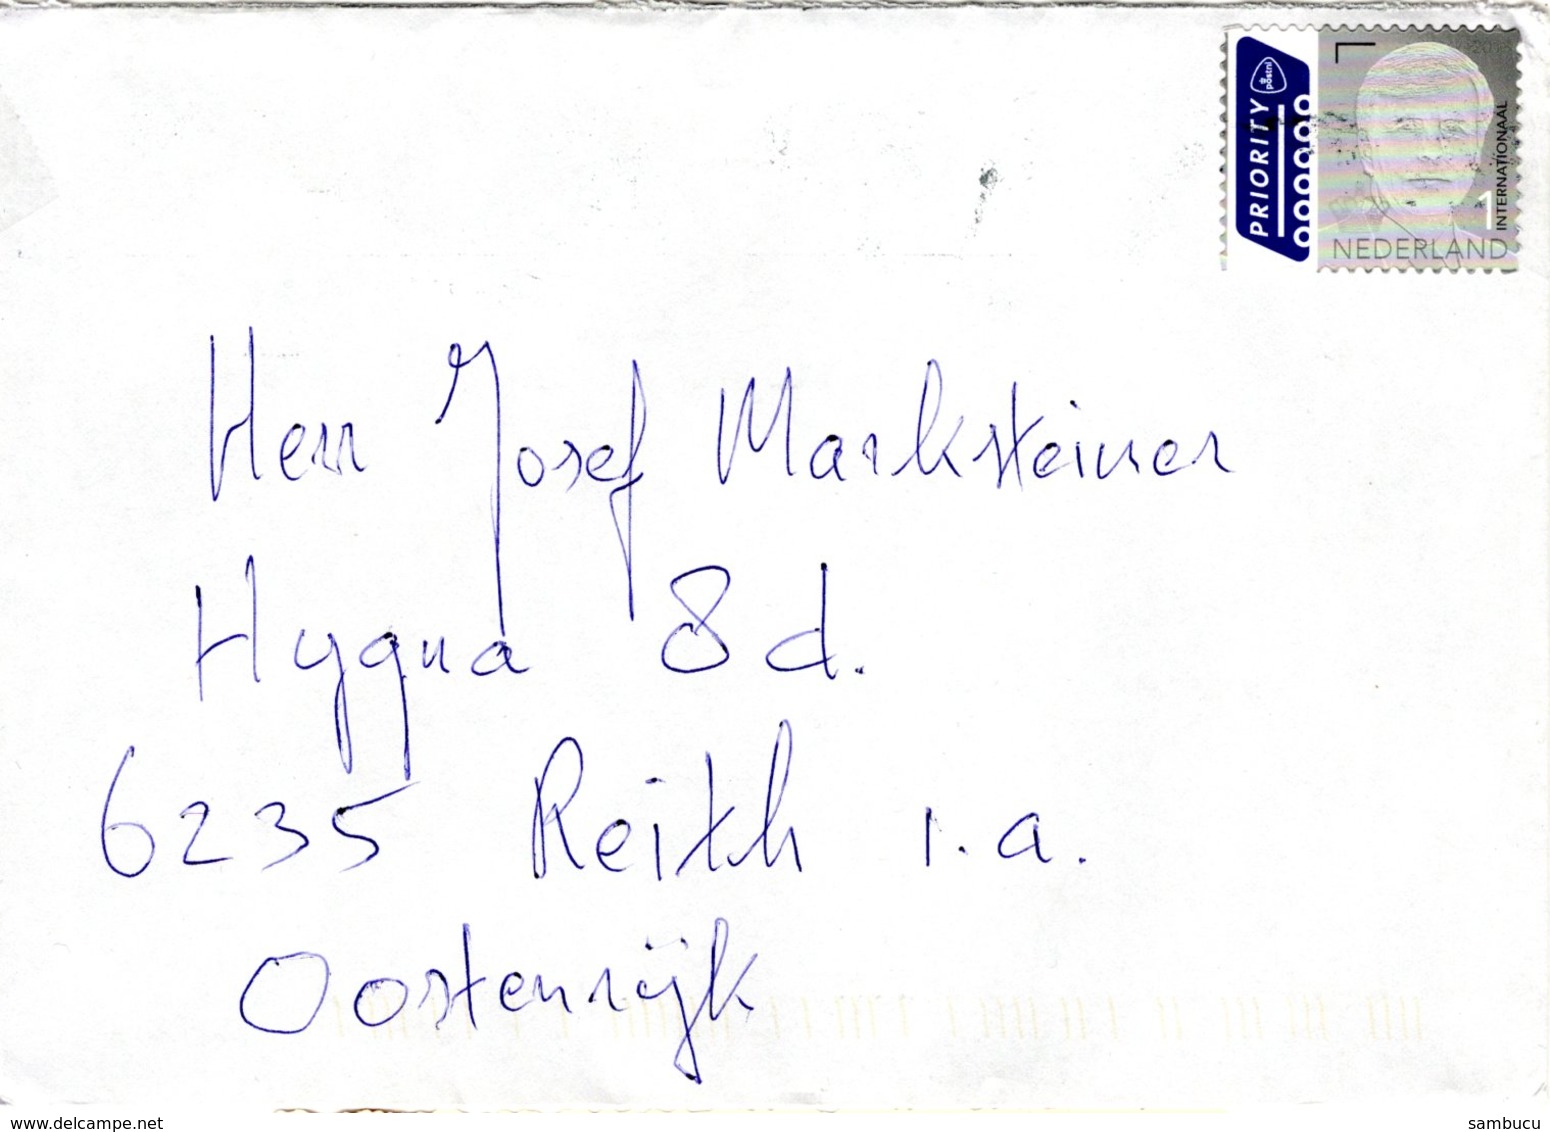 PRIORITY
postnl
INTERNATIONAAL
1
NEDERLAND
Herr Josef Marksteiner
Hygna 8d.
6235 Reith i.a.
Oostenrijk
www.delcampe.net
sambucu